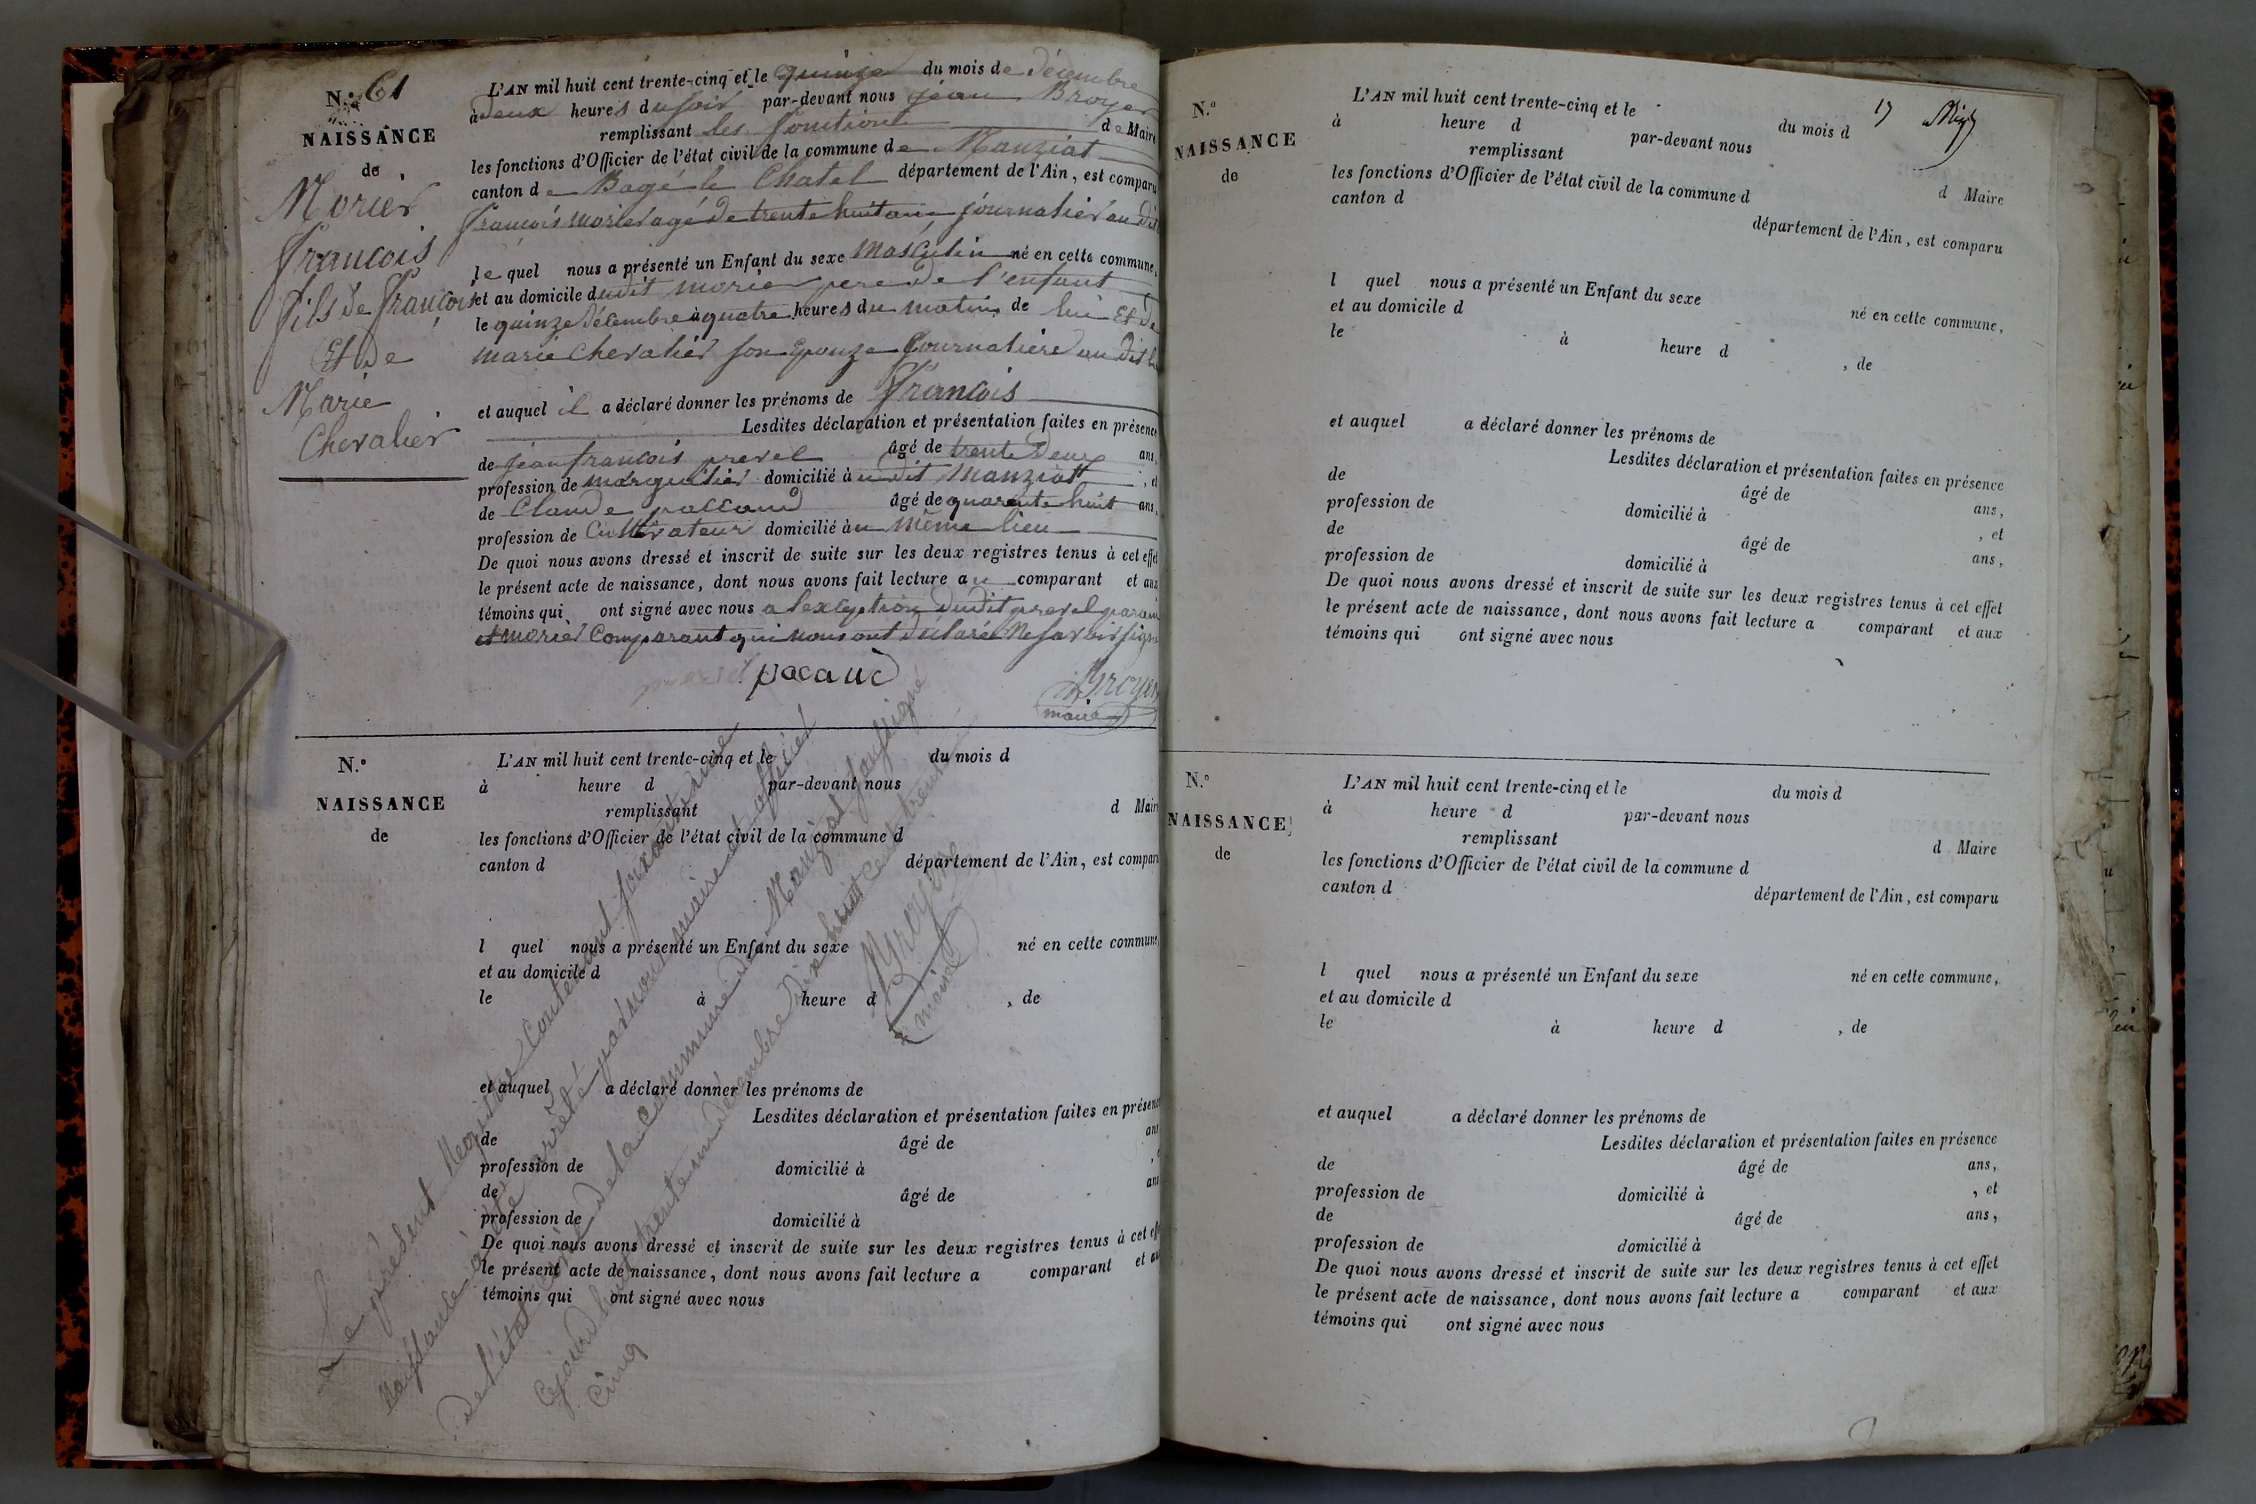 N.° 61
NAISSANCE
de
Morier
françois
fils de françois
Et de
Marie
Chevalier
L'AN mil huit cent trente-cinq et le quinze du mois de décembre
à deux heures du soir par-devant nous jean Broyer
remplissant les fonctions de Maire
les fonctions d'Officier de l'état civil de la commune de Manziat
canton de Bagé le Chatel département de l'Ain, est comparu
françois morier agé de trente huit ans journalier au dit
le quel nous a présenté un Enfant du sexe masculin né en cette commune,
et au domicile dudit morier pere de l'enfant
le quinze décembre à quatre heures du matin, de lui Et de
marie chevalier son epouze journaliere au dit
et auquel il a déclaré donner les prénoms de francois
Lesdites déclaration et présentation faites en présence
de jean francois prevel âgé de trente deux ans,
profession de marguilier domicilié à u dit Manziat, et
de Claude paccaud âgé de quarente huit ans,
profession de Cultivateur domicilié à u même lieu
De quoi nous avons dressé et inscrit de suite sur les deux registres tenus à cet effet
le présent acte de naissance, dont nous avons fait lecture au comparant et aux
témoins qui ont signé avec nous a lexception dudit prevel
et morier Comparant qui nous ont déclaré ne savoir signer
pacaud
Broyer
maire
N.°
NAISSANCE
de
L'AN mil huit cent trente-cinq et le du mois d
à heure d par-devant nous
remplissant d Maire
les fonctions d'Officier de l'état civil de la commune d
canton d département de l'Ain, est comparu
l quel nous a présenté un Enfant du sexe né en cette commune,
et au domicile d
le à heure d , de
et auquel a déclaré donner les prénoms de
Lesdites déclaration et présentation faites en présence
de âgé de ans
profession de domicilié à
de âgé de ans
profession de domicilié à
De quoi nous avons dressé et inscrit de suite sur les deux registres tenus à cet effet
le présent acte de naissance, dont nous avons fait lecture a comparant et aux
témoins qui ont signé avec nous
Le présent Registre Contenant soixante une
Naissance a été arrêté par nous maire et officier
de l'état civil de la Commune de Manziat soussigné
Cejourdhuy trente un décembre Dix huit cent trente
Cinq
Broyer
maire
17
N.°
NAISSANCE
de
L'AN mil huit cent trente-cinq et le du mois d
à heure d par-devant nous
remplissant d Maire
les fonctions d'Officier de l'état civil de la commune d
canton d département de l'Ain, est comparu
l quel nous a présenté un Enfant du sexe né en cette commune,
et au domicile d
le à heure d , de
et auquel a déclaré donner les prénoms de
Lesdites déclaration et présentation faites en présence
de âgé de ans,
profession de domicilié à , et
de âgé de ans,
profession de domicilié à
De quoi nous avons dressé et inscrit de suite sur les deux registres tenus à cet effet
le présent acte de naissance, dont nous avons fait lecture a comparant et aux
témoins qui ont signé avec nous
N.°
NAISSANCE
de
L'AN mil huit cent trente-cinq et le du mois d
à heure d par-devant nous
remplissant d Maire
les fonctions d'Officier de l'état civil de la commune d
canton d département de l'Ain, est comparu
l quel nous a présenté un Enfant du sexe né en cette commune,
et au domicile d
le à heure d , de
et auquel a déclaré donner les prénoms de
Lesdites déclaration et présentation faites en présence
de âgé de ans,
profession de domicilié à , et
de âgé de ans,
profession de domicilié à
De quoi nous avons dressé et inscrit de suite sur les deux registres tenus à cet effet
le présent acte de naissance, dont nous avons fait lecture a comparant et aux
témoins qui ont signé avec nous